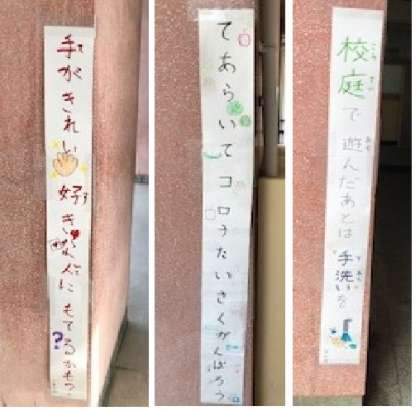 手がきれい 好きな人に もてるかも?
てあらいて コロナたいさくがんばろう
校庭で遊んだあとは 手洗いを